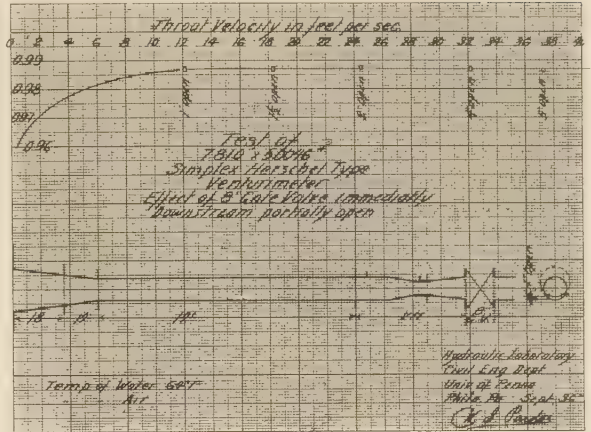 Throat Velocity in feet per sec.
0 2 4 6 8 10 12 14 16 18 20 22 24 26 28 30 32 34 36 38
0.99
0.98
0.97
0.96
1" open
1½" open
2" open
4" open
5" open
Test of
7.810 x 5.0046"
Simplex Herschel Type
Venturimeter
Effect of 8" Gate Valve immediately
Downstream partially open
Open
18
10'
8"
Temp of Water 68°F
Air
Hydraulic Laboratory
Civil Eng Dept
Univ of Penna
Phila, Pa Sept 36